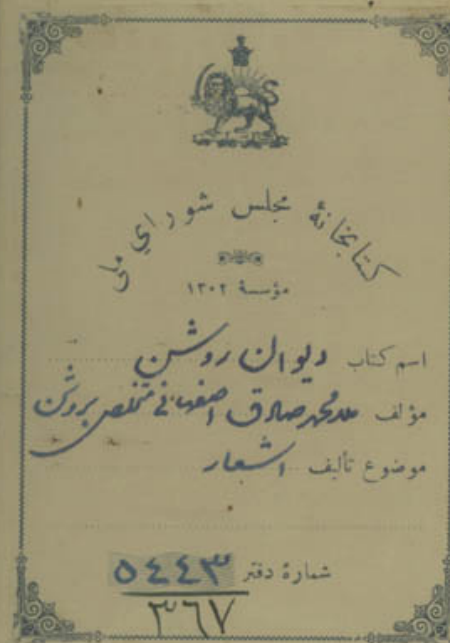 کتابخانهٔ مجلس شورای ملی
مؤسسهٔ ۱۳۰۲
اسم کتاب دیوان روشن
مؤلف محمد صادق اصفهانی متخلص بروشن
موضوع تألیف اشعار
شمارهٔ دفتر ۵۴۴۳
۳۶۷